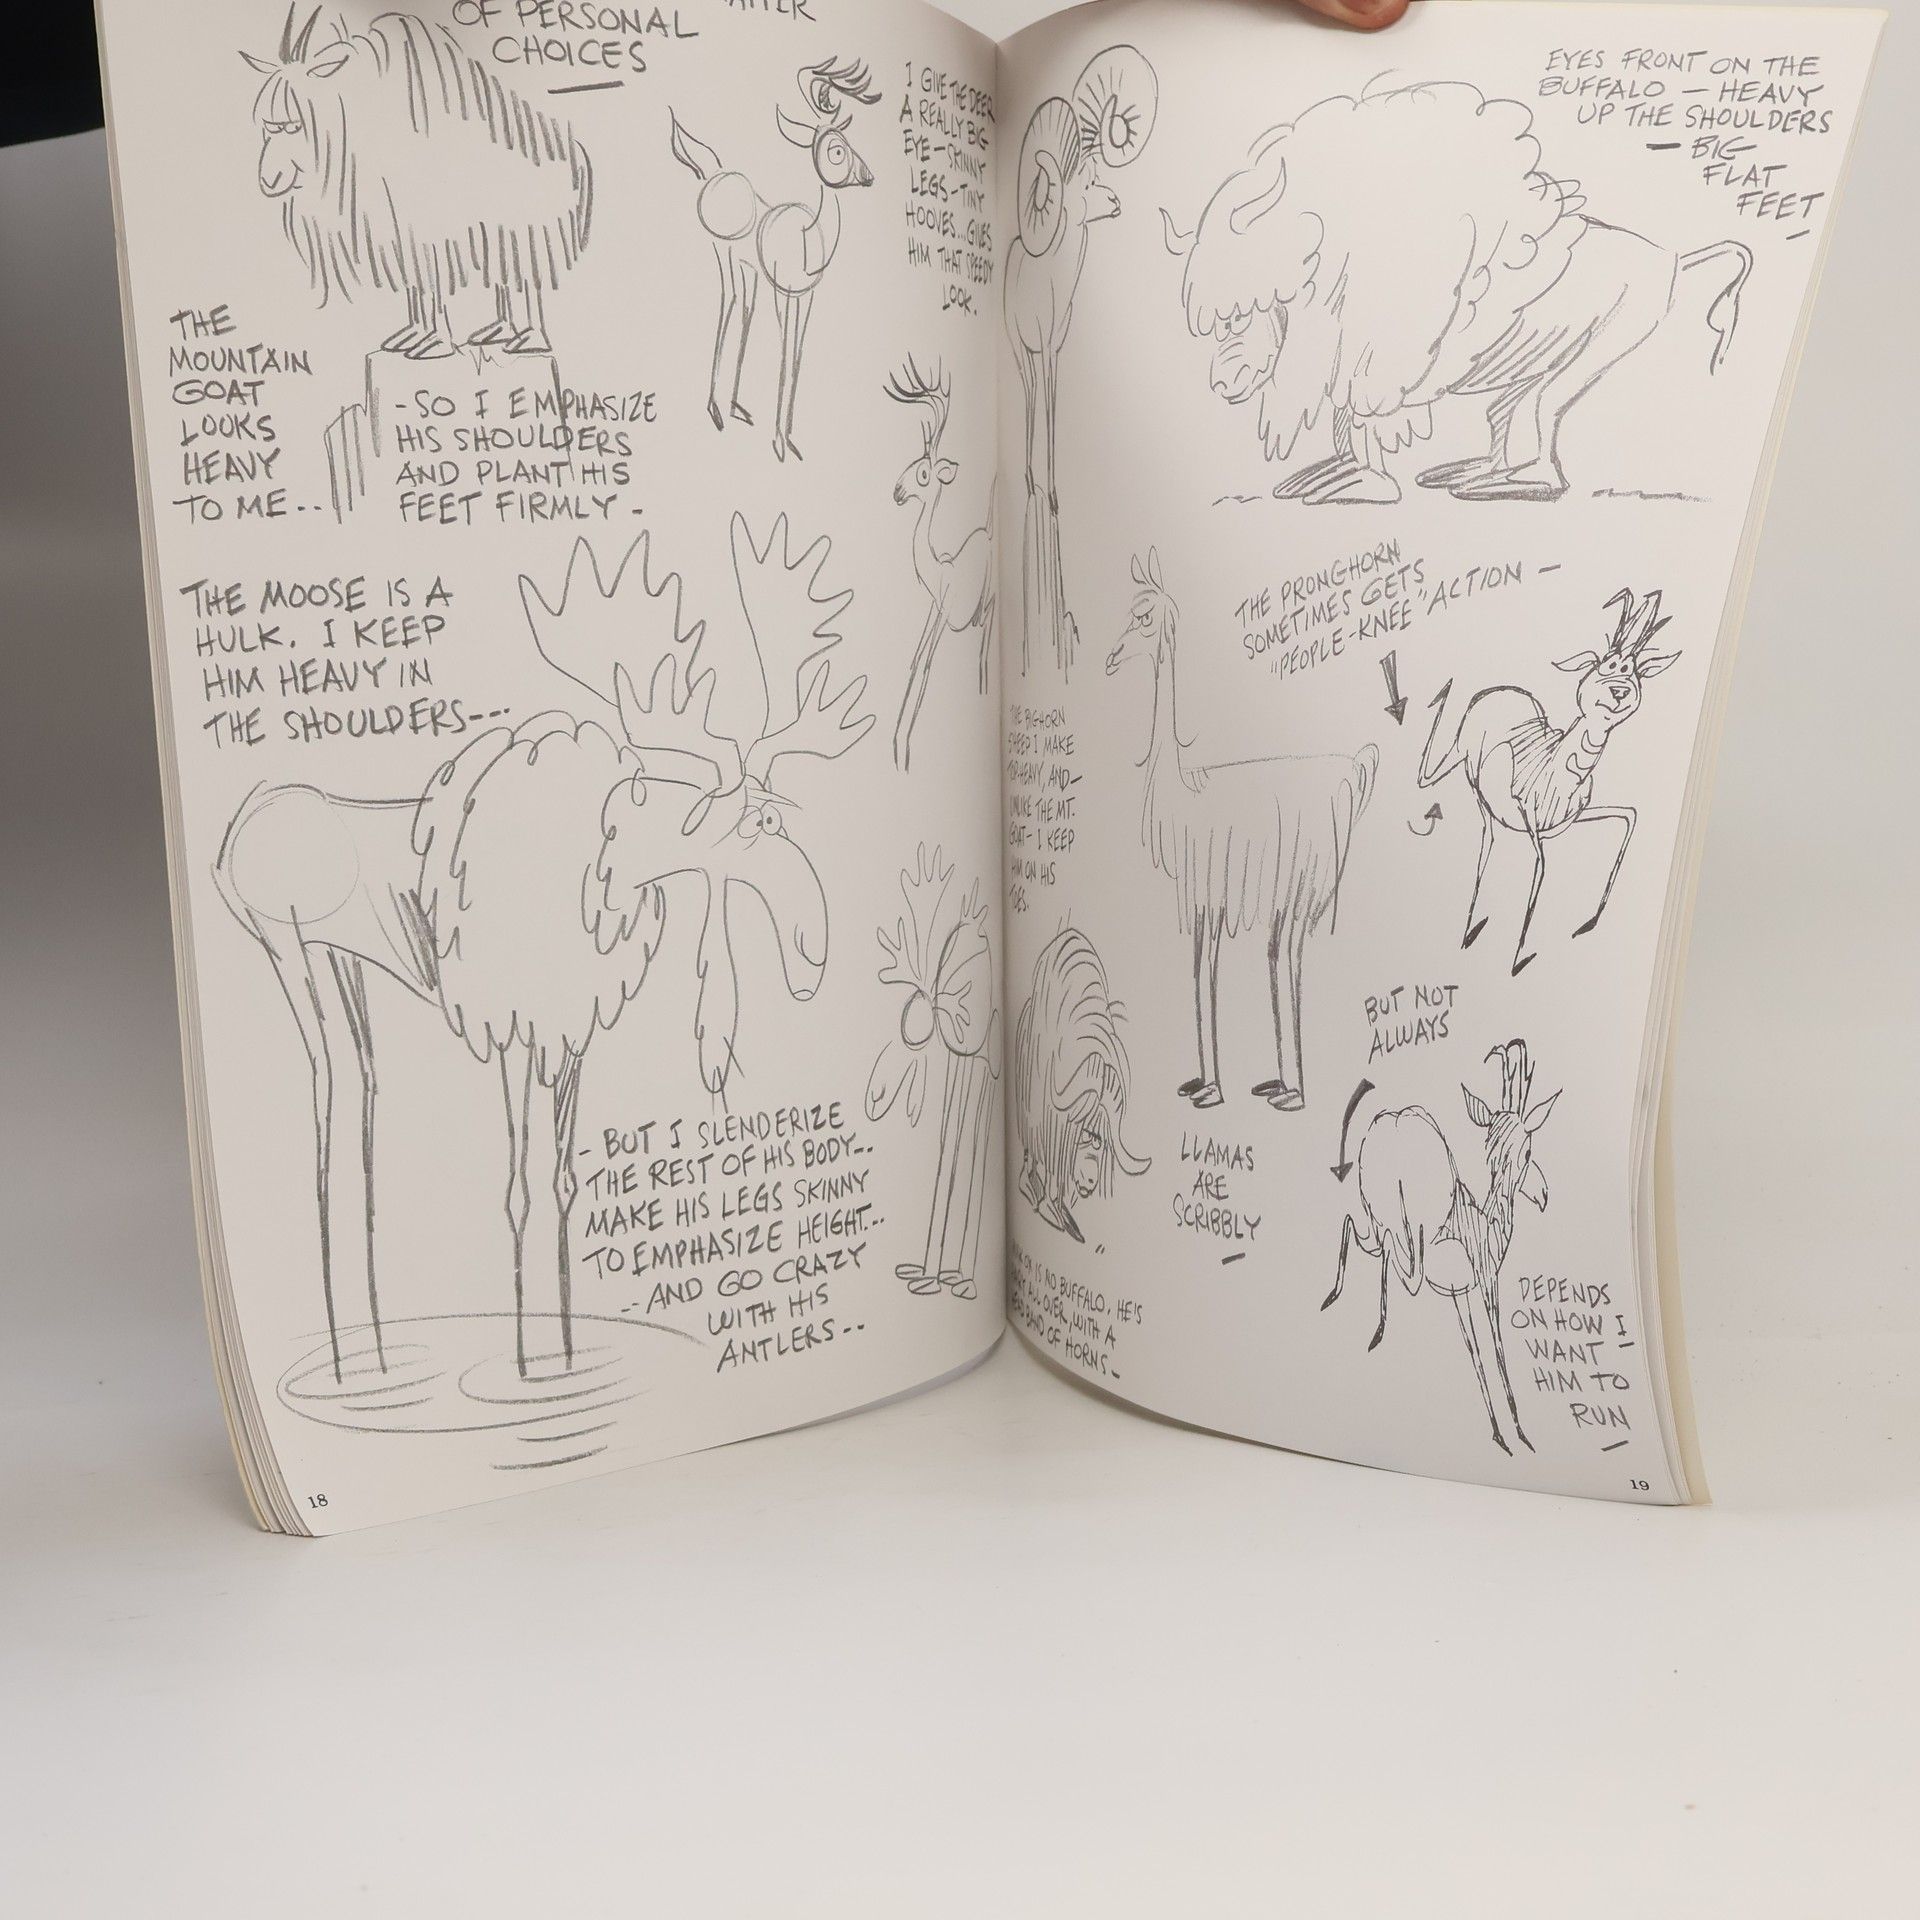 OF PERSONAL
CHOICES
I GIVE THE DEER
A REALLY BIG
EYE - SKINNY
LEGS - TINY
HOOVES... GIVES
HIM THAT SPEEDY
LOOK.
THE
MOUNTAIN
GOAT
LOOKS
HEAVY
TO ME..
- SO I EMPHASIZE
HIS SHOULDERS
AND PLANT HIS
FEET FIRMLY -
THE MOOSE IS A
HULK. I KEEP
HIM HEAVY IN
THE SHOULDERS---
- BUT I SLENDERIZE
THE REST OF HIS BODY--
MAKE HIS LEGS SKINNY
TO EMPHASIZE HEIGHT--
-- AND GO CRAZY
WITH HIS
ANTLERS--
18
EYES FRONT ON THE
BUFFALO - HEAVY
UP THE SHOULDERS
- BIG
FLAT
FEET
THE BIGHORN
SHEEP I MAKE
TOP HEAVY, AND -
UNLIKE THE MT.
GOAT - I KEEP
HIM ON HIS
TOES.
THE PRONGHORN
SOMETIMES GETS
"PEOPLE-KNEE" ACTION -
BUT NOT
ALWAYS
LLAMAS
ARE
SCRIBBLY
OX IS NO BUFFALO. HE'S
ALL OVER, WITH A
BAND OF HORNS -
DEPENDS
ON HOW I
WANT
HIM TO
RUN
19